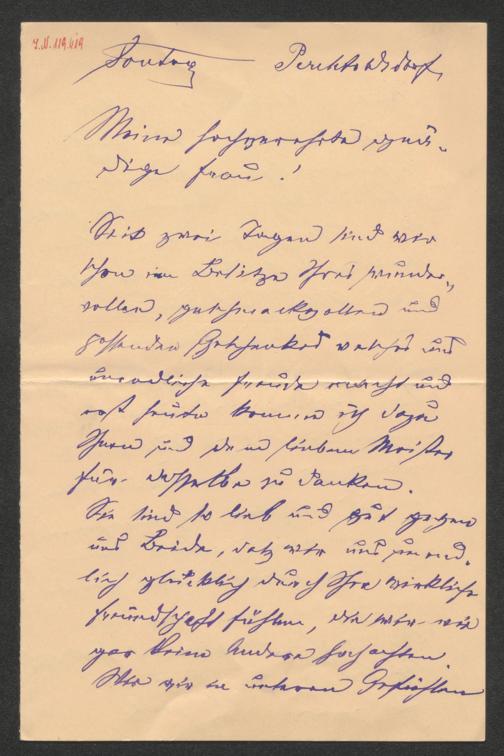 I.N. 119.419
Sontag Perchtoldsdorf,
Meine hochverehrte gnä-
dige Frau!
Seit zwei Tagen sind wir
schon im Besitze Ihres wunder-
vollen, geschmackvollen und
passenden Geschenkes welches uns
unendliche Freude macht und
erst heute komme ich dazu
Ihnen und dem lieben Meister
für dasselbe zu danken.
Sie sind so lieb und gut gegen
uns Beide, daß wir uns unend-
lich glücklich durch Ihre wirkliche
Freundschaft fühlen, die wir wie
gar keine Andere hochachten.
Wie wir in unseren Gefühlen